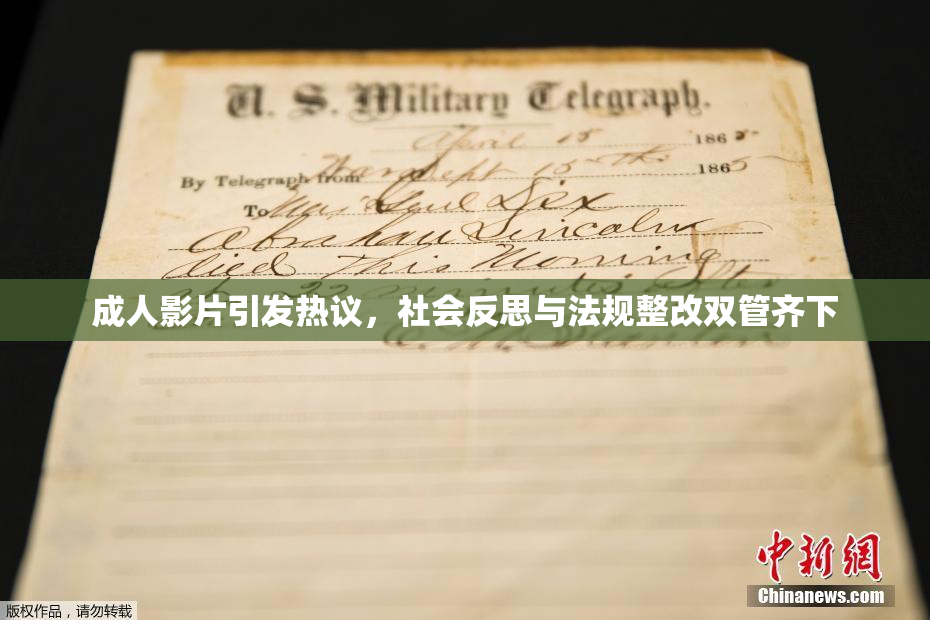 U. S. Military Telegraph.
April 15 1865
By Telegraph from 15th 1865
To Maj Genl Dix
Abraham Lincoln
died This Morning
22 minutes after
成人影片引发热议，社会反思与法规整改双管齐下
E. M. Stanton
中新网
Chinanews.com
版权作品，请勿转载